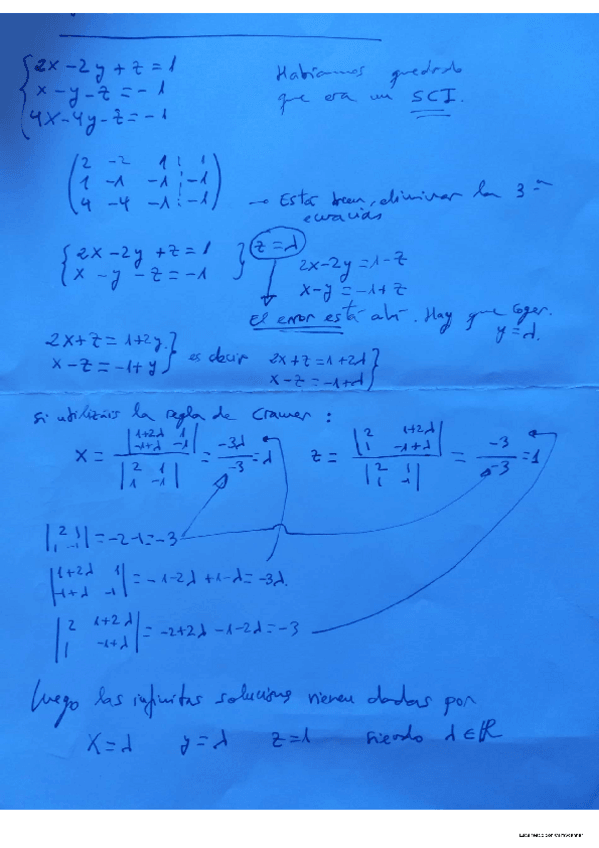 2x-2y+z=1
x-y-z=-1
4x-4y-z=-1
Habíamos quedado
que era un SCI.
2 -2 1 1
1 -1 -1 -1
4 -4 -1 -1
→ Está bien, eliminar la 3ª
ecuación
2x-2y+z=1
x-y-z=-1
z=λ
2x-2y=1-z
x-y=-1+z
El error está ahí. Hay que coger
y=λ.
2x+z=1+2y
x-z=-1+y
es decir
2x+z=1+2λ
x-z=-1+λ
Si utilizáis la regla de Cramer:
x = |1+2λ 1; -1+λ -1| / |2 1; 1 -1| = -3λ/-3 = λ
z = |2 1+2λ; 1 -1+λ| / |2 1; 1 -1| = -3/-3 = 1
|2 1; 1 -1| = -2-1=-3
|1+2λ 1; -1+λ -1| = -1-2λ+1-λ=-3λ.
|2 1+2λ; 1 -1+λ| = -2+2λ-1-2λ=-3
Luego las infinitas soluciones vienen dadas por
x=λ y=λ z=1 siendo λ∈ℝ